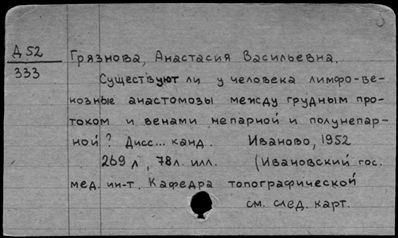 Д 52
333
Грязнова, Анастасия Васильевна.
Существуют ли у человека лимфо-ве-
нозные анастомозы между грудным про-
током и венами непарной и полунепар-
ной? Дисс... канд. Иваново, 1952
269 л, 78 л. илл. (Ивановский гос.
мед. ин-т. Кафедра топографической
см. след. карт.